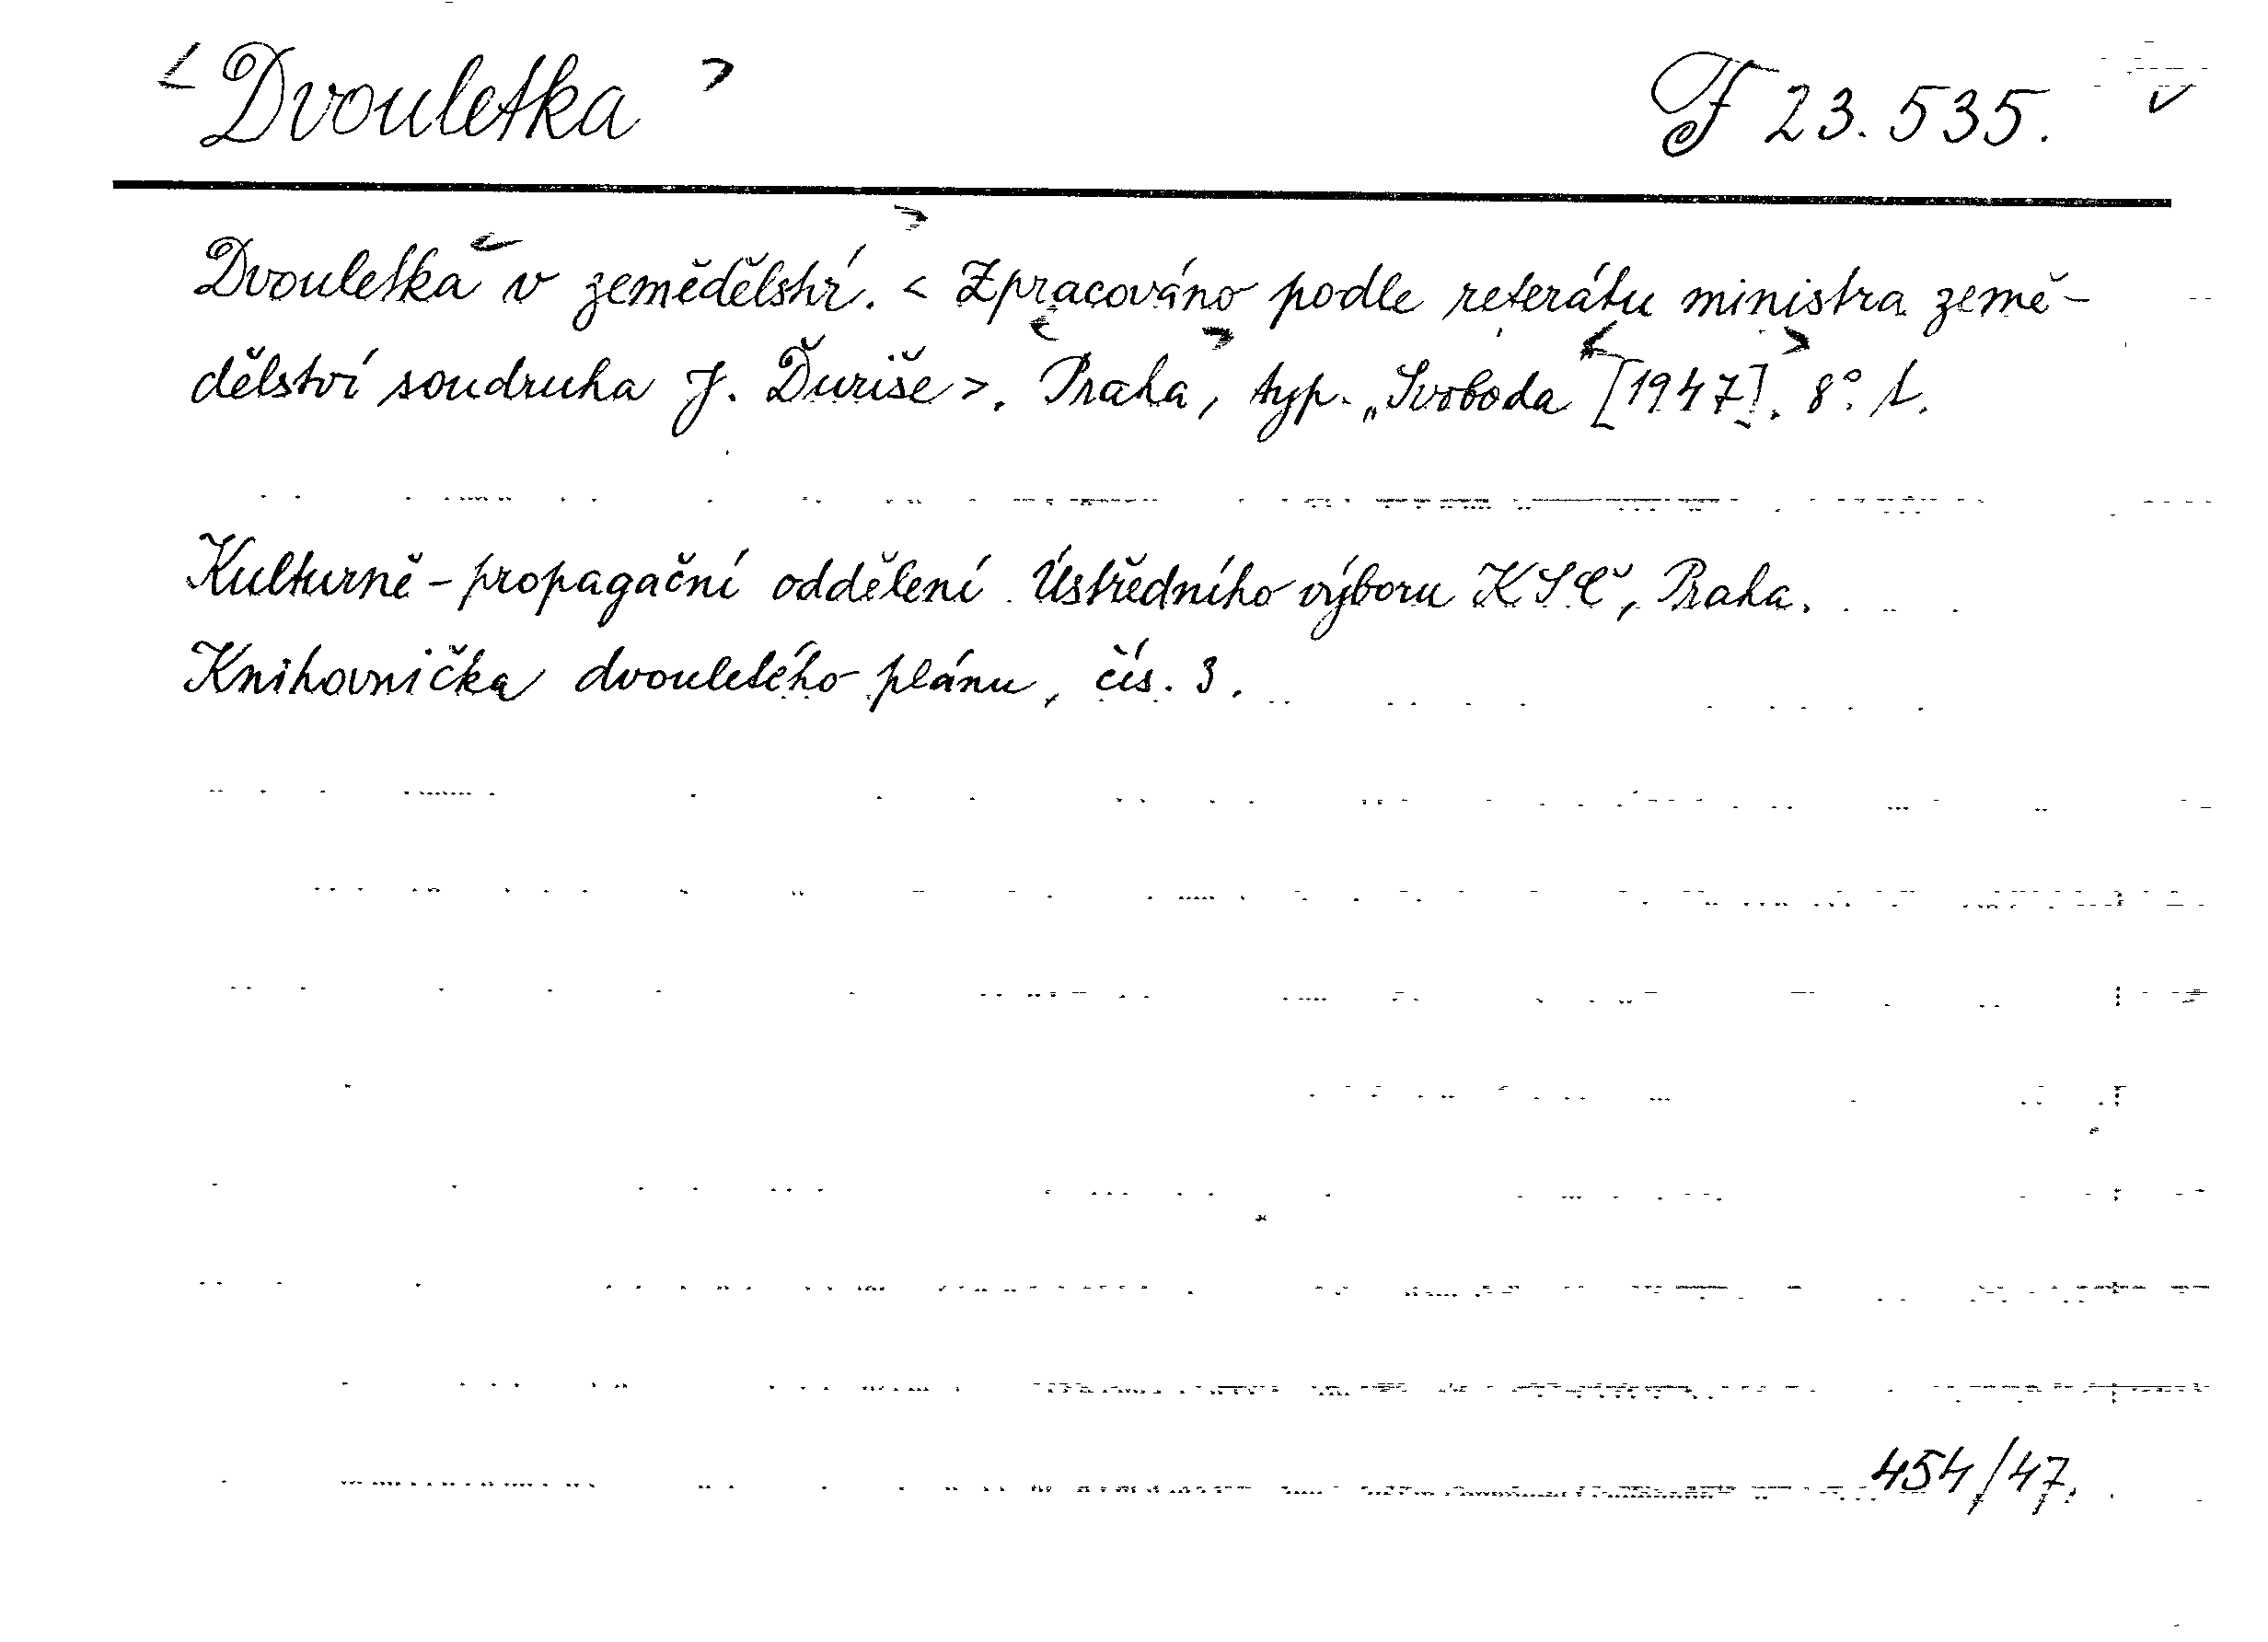 < Dvouletka > F 23.535. v
Dvouletka v zemědělství. < Zpracováno podle referátu ministra země-
dělství soudruha J. Ďuriše >. Praha, typ. „Svoboda [1947]. 8°. 1.
Kulturně-propagační oddělení Ústředního výboru KSČ, Praha.
Knihovnička dvouletého plánu, čís. 3.
454/47.